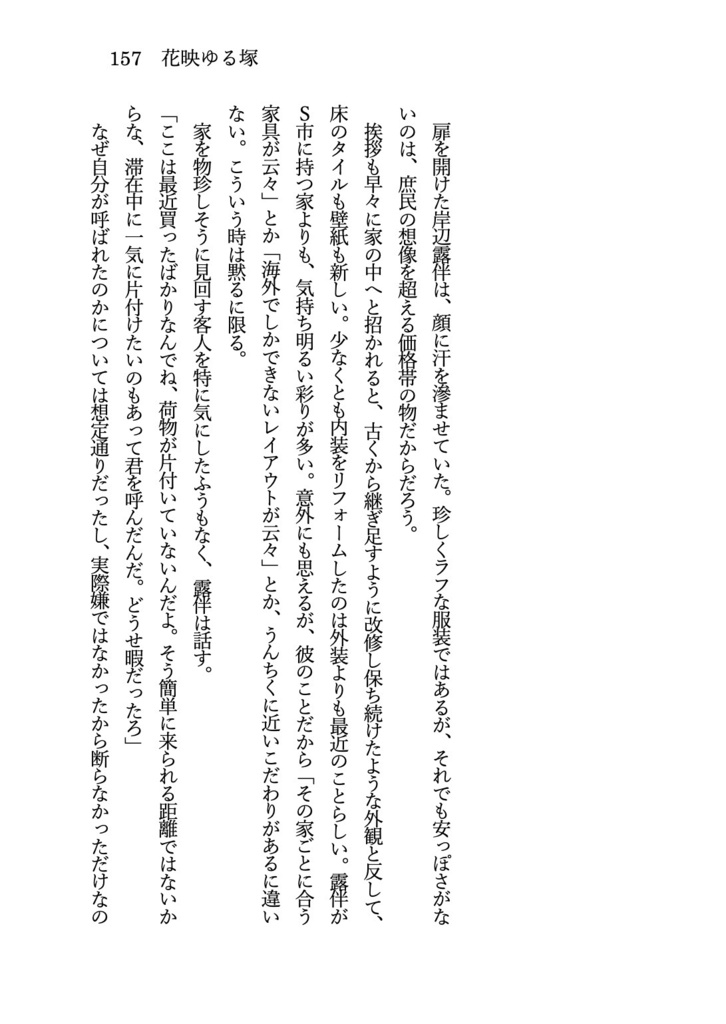 157 花映ゆる塚
扉を開けた岸辺露伴は、顔に汗を滲ませていた。珍しくラフな服装ではあるが、それでも安っぽさがな
いのは、庶民の想像を超える価格帯の物だからだろう。
挨拶も早々に家の中へと招かれると、古くから継ぎ足すように改修し保ち続けたような外観と反して、
床のタイルも壁紙も新しい。少なくとも内装をリフォームしたのは外装よりも最近のことらしい。露伴が
S市に持つ家よりも、気持ち明るい彩りが多い。意外にも思えるが、彼のことだから「その家ごとに合う
家具が云々」とか「海外でしかできないレイアウトが云々」とか、うんちくに近いこだわりがあるに違い
ない。こういう時は黙るに限る。
家を物珍しそうに見回す客人を特に気にしたふうもなく、露伴は話す。
「ここは最近買ったばかりなんでね、荷物が片付いていないんだよ。そう簡単に来られる距離ではないか
らな、滞在中に一気に片付けたいのもあって君を呼んだんだ。どうせ暇だったろ」
なぜ自分が呼ばれたのかについては想定通りだったし、実際嫌ではなかったから断らなかっただけなの